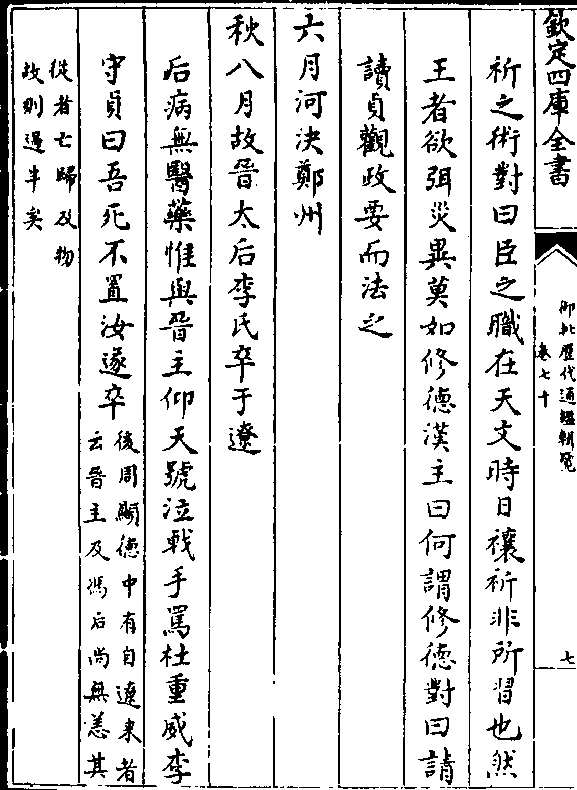 欽定四庫全書
御批歷代通鑑輯覽
卷七十
七
祈之術對曰臣之職在天文時日禳祈非所習也然
王者欲弭災異莫如修德漢主曰何謂修德對曰請
讀貞觀政要而法之
六月河決鄭州
秋八月故晉太后李氏卒于遼
后病無醫藥惟與晉主仰天號泣戟手罵杜重威李
守貞曰吾死不置汝遂卒
後周顯德中有自遼來者
云晉主及馮后尚無恙其
從者亡歸及物
故則過半矣